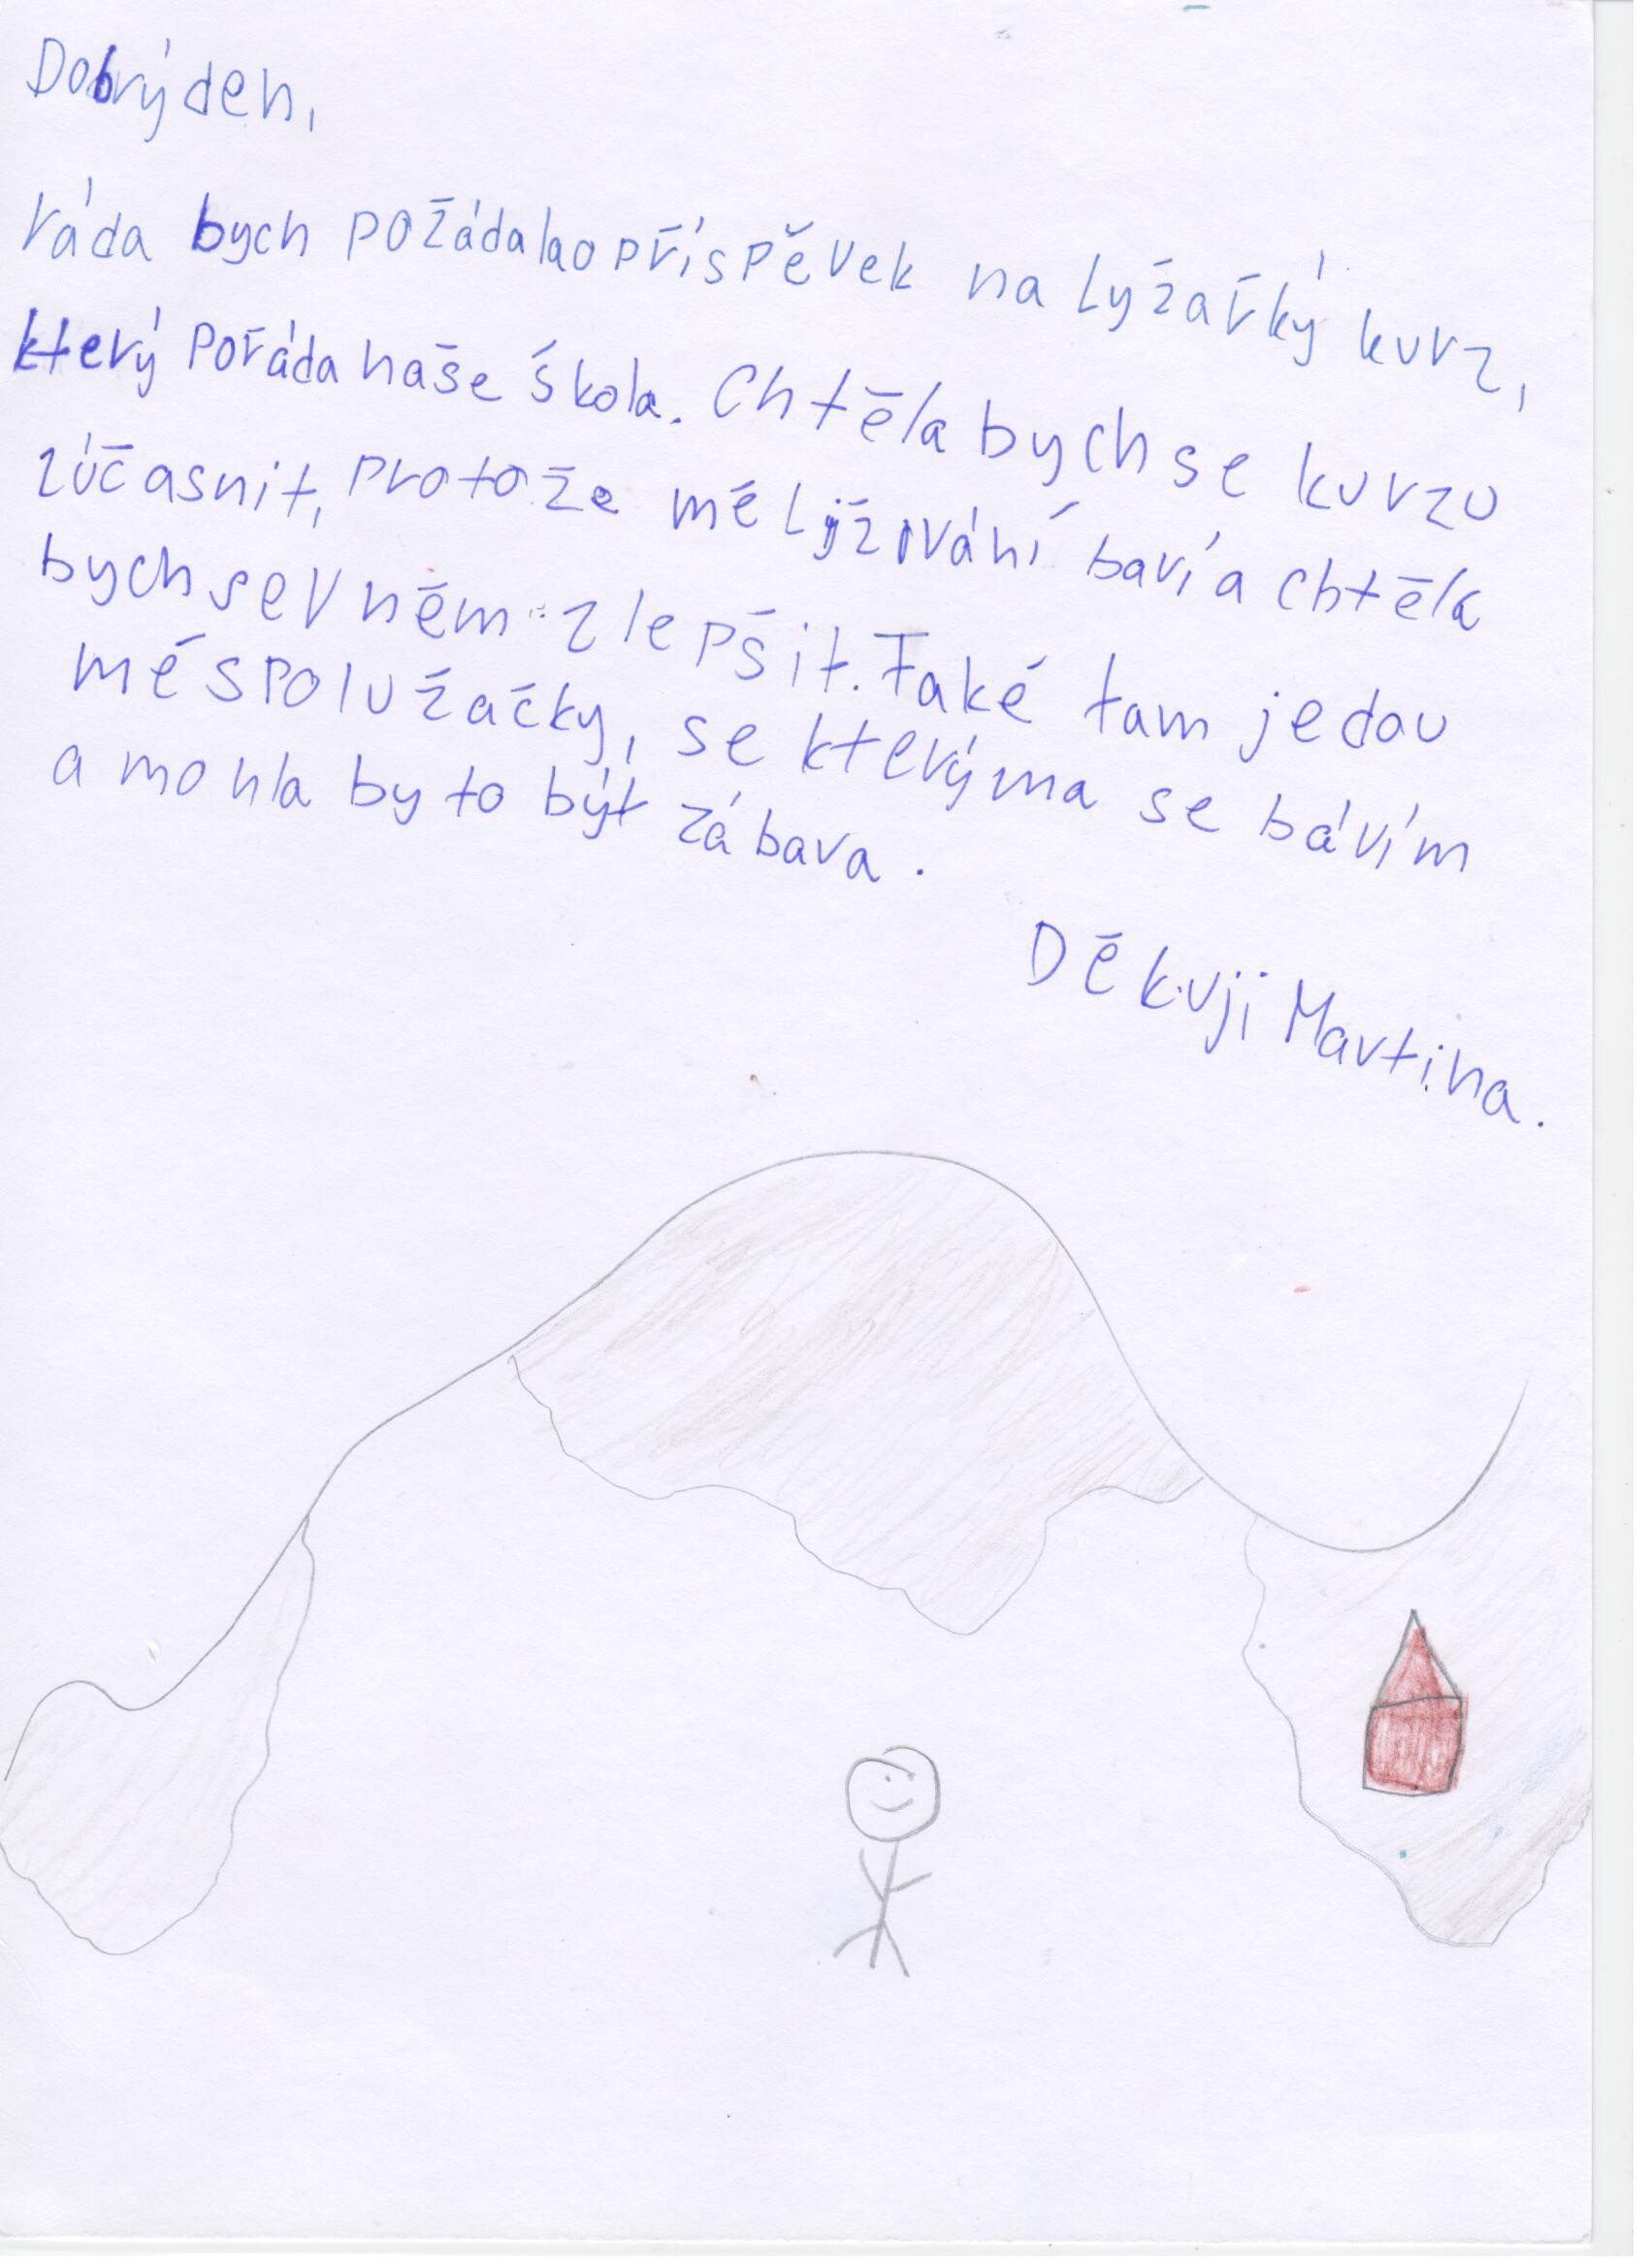 Dobrý den,
ráda bych požádala o příspěvek na lyžařký kurz,
který pořáda naše škola. Chtěla bych se kurzu
zúčasnit, protože mé lyžování baví a chtěla
bych se v ném zlepšit. Také tam jedou
mé spolužačky, se kterýma se bávím
a mohla by to být zábava.
Děkuji Martina.